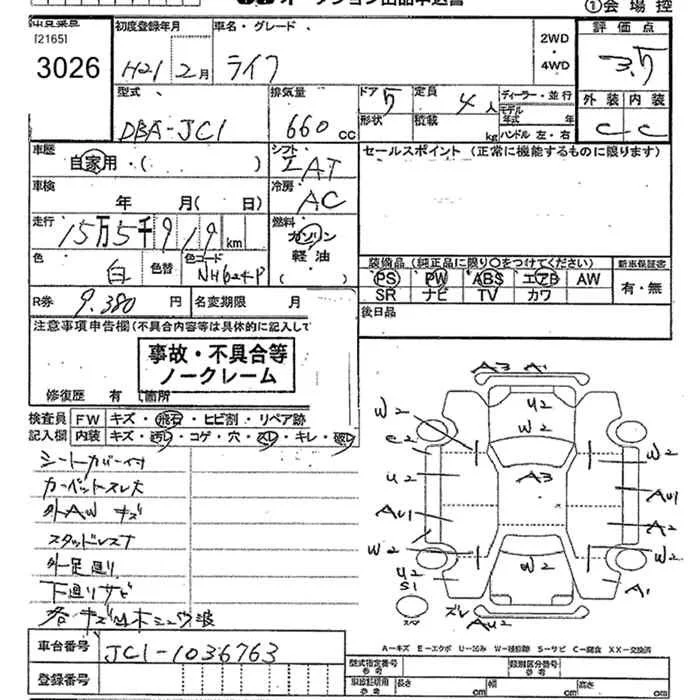 ①会場控
[2165]
3026
初度登録年月
H21 2月
車名・グレード
ライフ
2WD
・
4WD
評価点
3.5
外装 内装
C C
型式
DBA-JC1
排気量
660 CC
ドア 5
形状
定員
4人
積載
kg
ディーラー・並行
モデル年式 年
ハンドル 左・右
車歴
自家用・( )
シフト
IAT
セールスポイント (正常に機能するものに限ります)
車検
年 月( 日)
冷房
AC
走行
15万5千919km
燃料
ガソリン
軽油
( )
色
白
色替
色コード
NH624P
装備品 (純正品に限り○をつけてください)
新車保証書
PS PW ABS エアB AW
SR ナビ TV カワ
有・無
R券 9,380円
名変期限 月
後日品
注意事項申告欄(不具合内容等は具体的に記入して
事故・不具合等
ノークレーム
修復歴 有 (箇所
検査員
記入欄
FW キズ・飛石・ヒビ割・リペア跡
内装 キズ・汚レ・コゲ・穴・スレ・キレ・破レ
シートカバー付
カーペットスレ大
外AW キズ
スタッドレス
外一足廻り
下廻りサビ
A3 A1
U2
W2
W2
C2
A3
W2
U2
AU1
AU1
A2
W2
W2
W2
U2
S1
A1
スペア
ズレ
AU2
A-キズ E-エクボ U-凹み W-補修跡 S-サビ C-腐食 XX-交換済
車台番号 JC1-1036763
登録番号
型式指定番号
参考
類別区分番号
参考
長さ cm 幅 cm 高さ cm